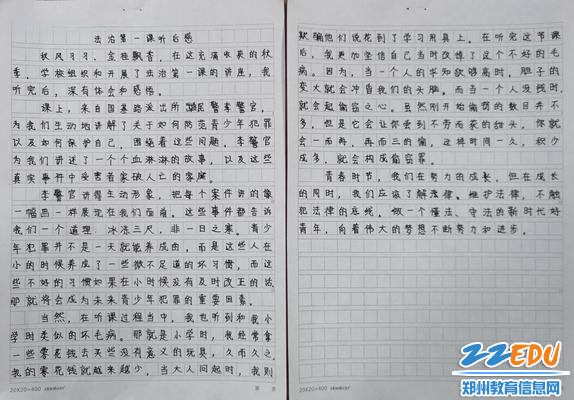 法治第一课听后感
秋风习习、金桂飘香，在这充满收获的秋
季，学校组织和开展了法治第一课的讲座，我
听完后，深有体会和感悟。
课上，来自国基路派出所的民警李警官，
为我们生动地讲解了关于如何防范青少年犯罪
以及如何保护自己，围绕着这些问题，李警官
为我们讲述了一个个血淋淋的故事，以及这些
真实事件中受害者家破人亡的家庭。
李警官讲得生动形象，把每个案件讲的像
一幅画一样展现在我们面前。这些事件都告诉
我们一个道理：冰冻三尺，非一日之寒。青少
年犯罪并不是一天就能养成的，而是这些人在
小的时候养成了一些微不足道的坏习惯，而这
些不好的习惯如果在小时候没有及时改正的话，
那就将会成为未来青少年犯罪的重要因素。
当然，在听课过程当中，我也听到和我小
学时类似的坏毛病。那就是小学时，我经常拿
一些零花钱去买些没有意义的玩具，久而久之
我的零花钱就越来越少，当大人问起时，我则
20X20=400
第 页
欺骗他们说花到了学习用具上。在听完这节课
后，我更加坚信自己当时改掉了这个不好的毛
病。因为，当一个人的求知欲够高时，胆子的
变大就会冲昏我们的头脑。而当一个人没钱时，
就会起偷窃之心。虽然刚开始偷窃的数目并不
多，但是它会让你尝到不劳而获的甜头，你就
会一而再，再而三的偷，这样时间一久，积少
成多，就会构成偷窃罪。
青春时节，我们在努力的成长，但在成长
的同时，我们应该了解法律。维护法律，不触
犯法律的底线。做一个懂法、守法的新时代好
青年，向着伟大的梦想不断努力和进步。
20X20=400
ZZEDU
郑州教育信息网